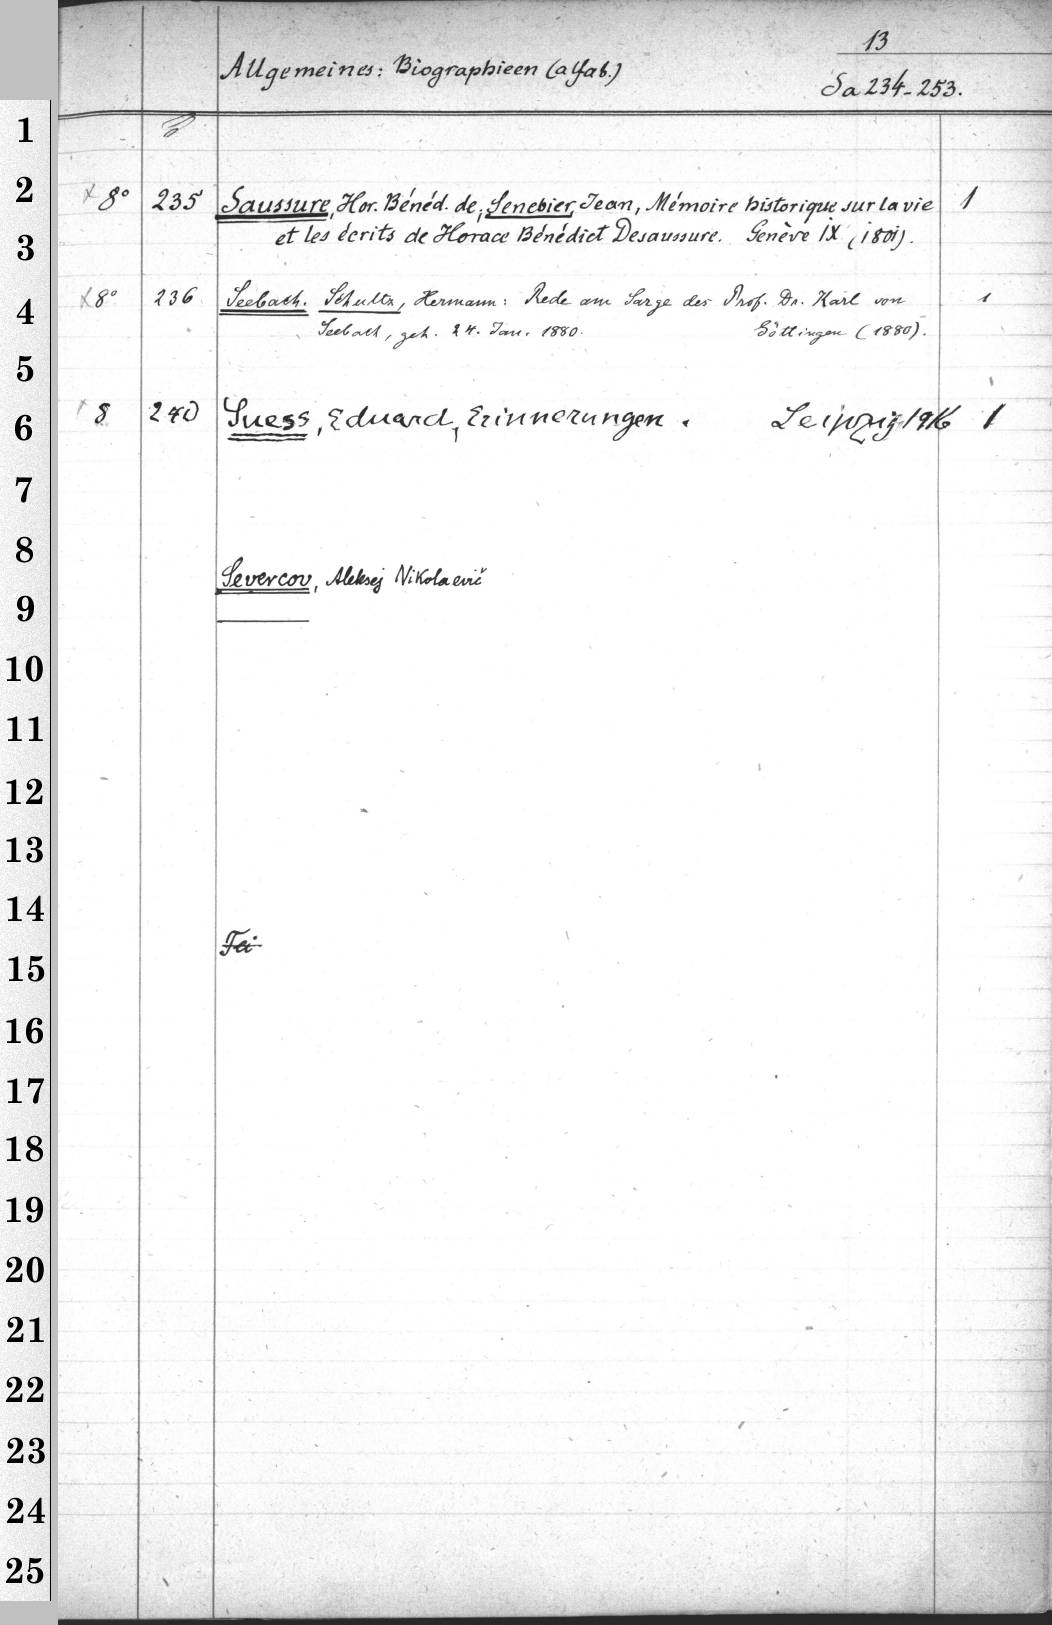 13
Allgemeines: Biographieen (alfab.)
Sa 234-253.
1
2 × 8° 235 Saussure, Hor. Bénéd. de, Senebier, Jean, Mémoire historique sur la vie 1
3 et les écrits de Horace Bénédict Desaussure. Genève IX (1801).
4 × 8° 236 Seebach. Schultz, Hermann: Rede am Sarge des Prof. Dr. Karl von 1
Seebach, geh. 24. Jan. 1880. Göttingen (1880).
5
6 8 240 Suess, Eduard, Erinnerungen. Leipzig 1916 1
7
8
Severcov, Aleksej Nikolaevič
9
10
11
12
13
14
Fei
15
16
17
18
19
20
21
22
23
24
25